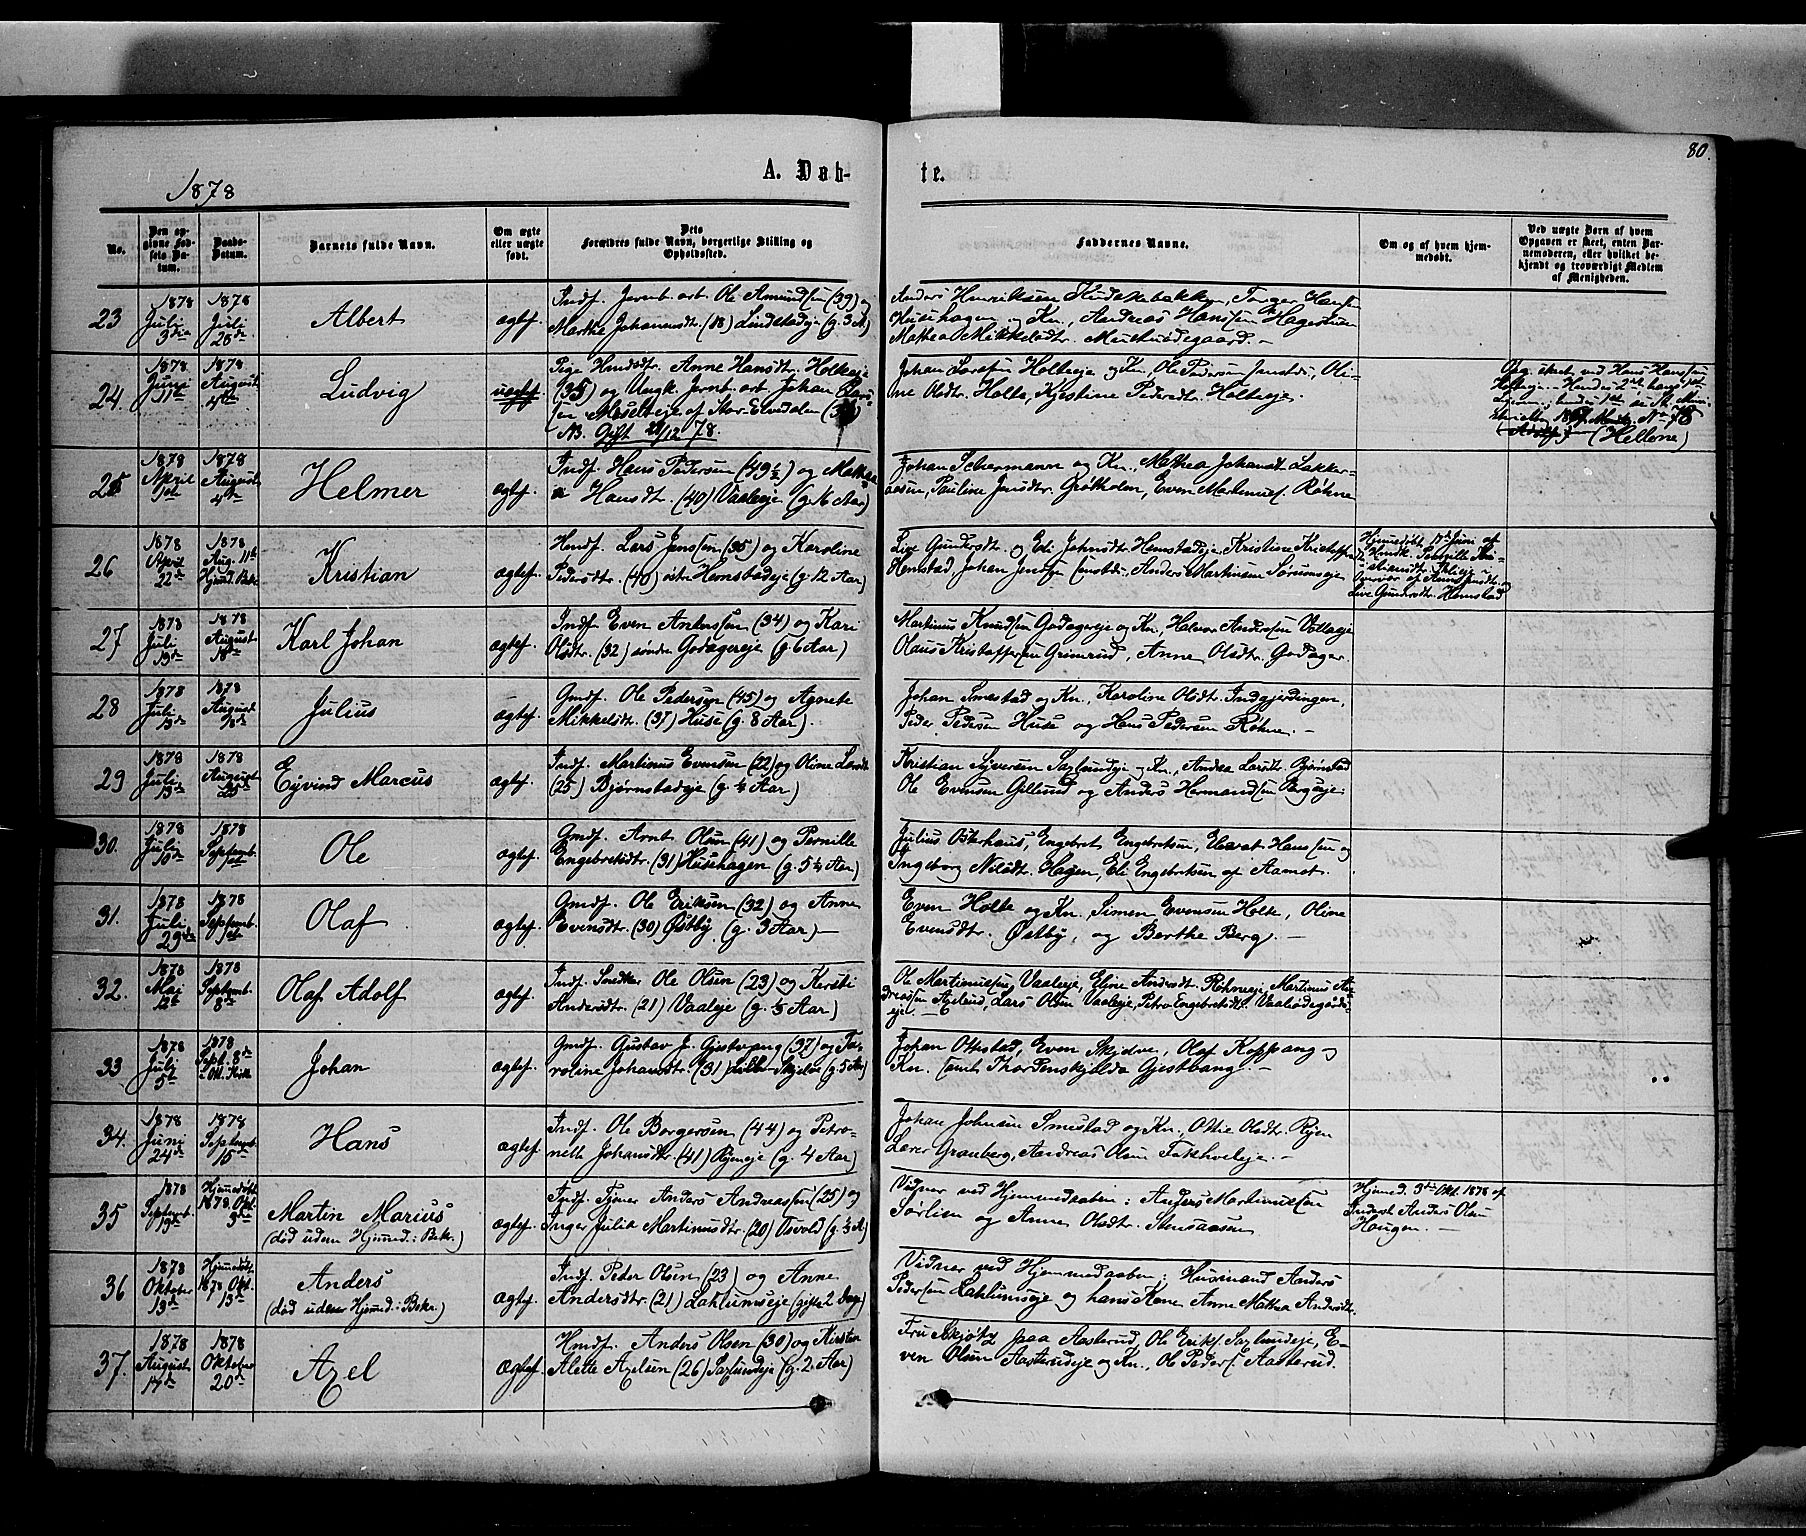 80.
1878
A. Døb-
te.
No.
Den op-
givne Fød-
sels Da-
tum.
Daabs-
Datum.
Barnets fulde Navn.
Om ægte
eller uægte
født.
Dets
Forældres fulde Navn, borgerlige Stilling og
Opholdssted.
Faddernes Navne.
Om og af hvem hjem-
medøbt.
Ved uægte Børn af hvem
Opgaven er skeet, enten Bar-
nemoderen, eller hvilket be-
kjendt og troværdigt Medlem
af Menigheden.
23
1878
Juli
3die
1878
Juli
28de
Albert
ægtef.
Indf. Jernb. arb. Ole Amundsen (39) og
Marthe Johannesdt. (18) Lindstadeje (g. 3 A)
Anders Henriksen Kudskebakken, Torger Hansen
Husehagen og Kn., Andreas Hanssen Hagestuen
Mathea Mikkelsdtr.
24.
1878
Juni
11te
1878
August
4de
Ludvig
uægtef
Pige Husdtr. Anne Hansdt. Holteeje
(35) og Ungk. Jernb. arb. Johan
af Stor-Elvedalen
NB. Gift 28/12 78.
Johan Larsen Holteeje og Kn., Ole Pedersen Oli-
ne Olsdtr. Holte, Kjerstine Pedersdt. Holteeje.
Opg. skeet ved Hans Hanssen
Holteeje. Hendes 2det hans 1ste
(Hellone)
25
1878
April
1ste
1878
August
4de
Helmer
ægtef.
Indf. Hans Pedersen (49½) og Mathea
Hansdt. (40) Vaaleeje (g. 16 Aar)
Johan Schermann og Kn., Mathea Johansdt. Lakker-
aasen, Pauline Jensdtr. Grøtholen, Even Martinusf. Røhne
26
1878
April
22de
1878
Aug. 11te
Hjmd. Bekr.
Kristian
ægtef.
Husf. Lars Jenssen (35) og Karoline
Pedersdtr. (40) østre Hemstadeje (g. 12 Aar)
Live Gundersdt. og Eli Johnsdt. Hemstadeje, Kristine Kristoffers
Hemstad, Johan Jenssen Anders Martinsen Sørumseje
Hjemmedøbt af
Pernille Kri-
stiansdt.
Live Gundersdt. Hemstad
27
1878
Juli
19de
1878
August
18de
Karl Johan
ægtef.
Indf. Even Anderssen (34) og Kari
Olsdtr. (32) søndre Godagereje (g. 6 Aar)
Martinus Knudsen Godagereje og Kn., Halvor Andersen Volleeje
Olaus Kristoffersen Grimerud, Anne Olsdtr. Godager.
28
1878
Juli
13de
1878
August
18de
Julius
ægtef.
Gmdf. Ole Pedersen (45) og Agnete
Mikkelsdt. (37) Huse (g. 8 Aar).
Johan Smestad og Kn., Karoline Olsdt. Indgjerdingen,
Peder Pedersen Huse og Hans Pedersen Røhne.
29
1878
Juli
13de
1878
August
25de
Eyvind Marcus
ægtef.
Indf. Martinus Evensen (22) og Oline Larsdt
(25) Bjørnstadeje (g. ¼ Aar)
Kristian Syversen Saxlundeje og Kn., Andrea Larsdt. Bjørnstad
Ole Evensen Gillund og Anders Hermandsen Bergseje.
30.
1878
Juli
10de
1878
Septemb.
1ste
Ole
ægtef.
Gmdf. Arnt Olsen (41) og Pernille
Engebretsdtr. (31) Husehagen (g. 5½ Aar)
Julius Østerhaus, Engebret Engebretsen, Hanssen og
Ingeborg Nilsdt. Hagen, Eli Engebretsen af Aamot.
31.
1878
Juli
29de
1878
Septemb.
1ste
Olaf
ægtef.
Gmdf. Ole Eriksen (32) og Anne
Evensdtr. (30) Østby (g. 3 Aar)
Even Holte og Kn., Simen Evensen Holte, Oline
Evensdtr. Østby, og Berthe Berg.
32.
1878
Mai
12te
1878
Septemb.
8de
Olaf Adolf
ægtef.
Indf. Snedker Ole Olsen (23) og Kersti
Andersdt. (21) Vaaleje (g. ⅓ Aar)
Ole Martinussen Vaaleje, Eline Andersdt. Røhneeje, Martinus An-
dreassen Lars Olsen Vaaleje, Petra Engebretsdt. Vaalsødegaards-
eje.
33
1878
Juli
5te
1878
Sept. 8de
i Ott. Kirke
Johan
ægtef.
Gmdf. Gustav J. Gjestvang (37) og Ka-
roline Johansdt. (31) Lille-Skjelve (g. 5 Aar)
Johan Ottestad, Even Skjelve, Olaf Koppang og
Kn. samt Thora Penskjolda Gjestvang.
34.
1878
Juni
24de
1878
Septemb.
15de
Hans
ægtef.
Indf. Ole Borgersen (44) og Petro-
nelle Johansdt. (41) Ryeneje (g. 4 Aar)
Johan Johnsen Smestad og Kn., Ottie Olsdtr. Ryen
Lærer Granberg, Andreas Olsen
35
1878
Septemb.
19de
Hjemmedøbt
1878 Okt.
3de
Martin Marius
(død uden Hjmd.: Bekr.)
ægtef.
Indf. Tjener Anders Andreassen (25) og
Inger Julie Martinusdtr. (20) Osvold (g. ½ A)
Vidner ved Hjemmedaaben: Anders Martinussen
Sorlien og Anne Olsdtr. Stensaasen
Hjmd. 3de Okt. 1878 af
Inderst Anders Olsen
Haugen.
36
1878
Oktober
13de
Hjemmedøbt
1878 Okt.
13de
Anders
(død uden Hjmd.: Bekr.)
ægtef.
Indf. Peder Olsen (23) og Anne
Andersdtr. (21) Lahlumseje (gifte 2 Dage)
Vidner ved Hjemmedaaben: Husmand Anders
Pedersen Lahlumseje og hans Kone Anne Mathea Andersdt.
37.
1878
August
14de
1878
Oktober
20de
Axel
ægtef.
Husf. Anders Olsen (30) og Kirsten
Alette Axelsen (26) Saxlundeje (g. 2 Aar)
Fru Skjøtz paa Aasterud, Ole Erikf. Saxlundeje, E-
ven Olsen Aasterudeje og Kn., Ole Pedersf. Aasterud.